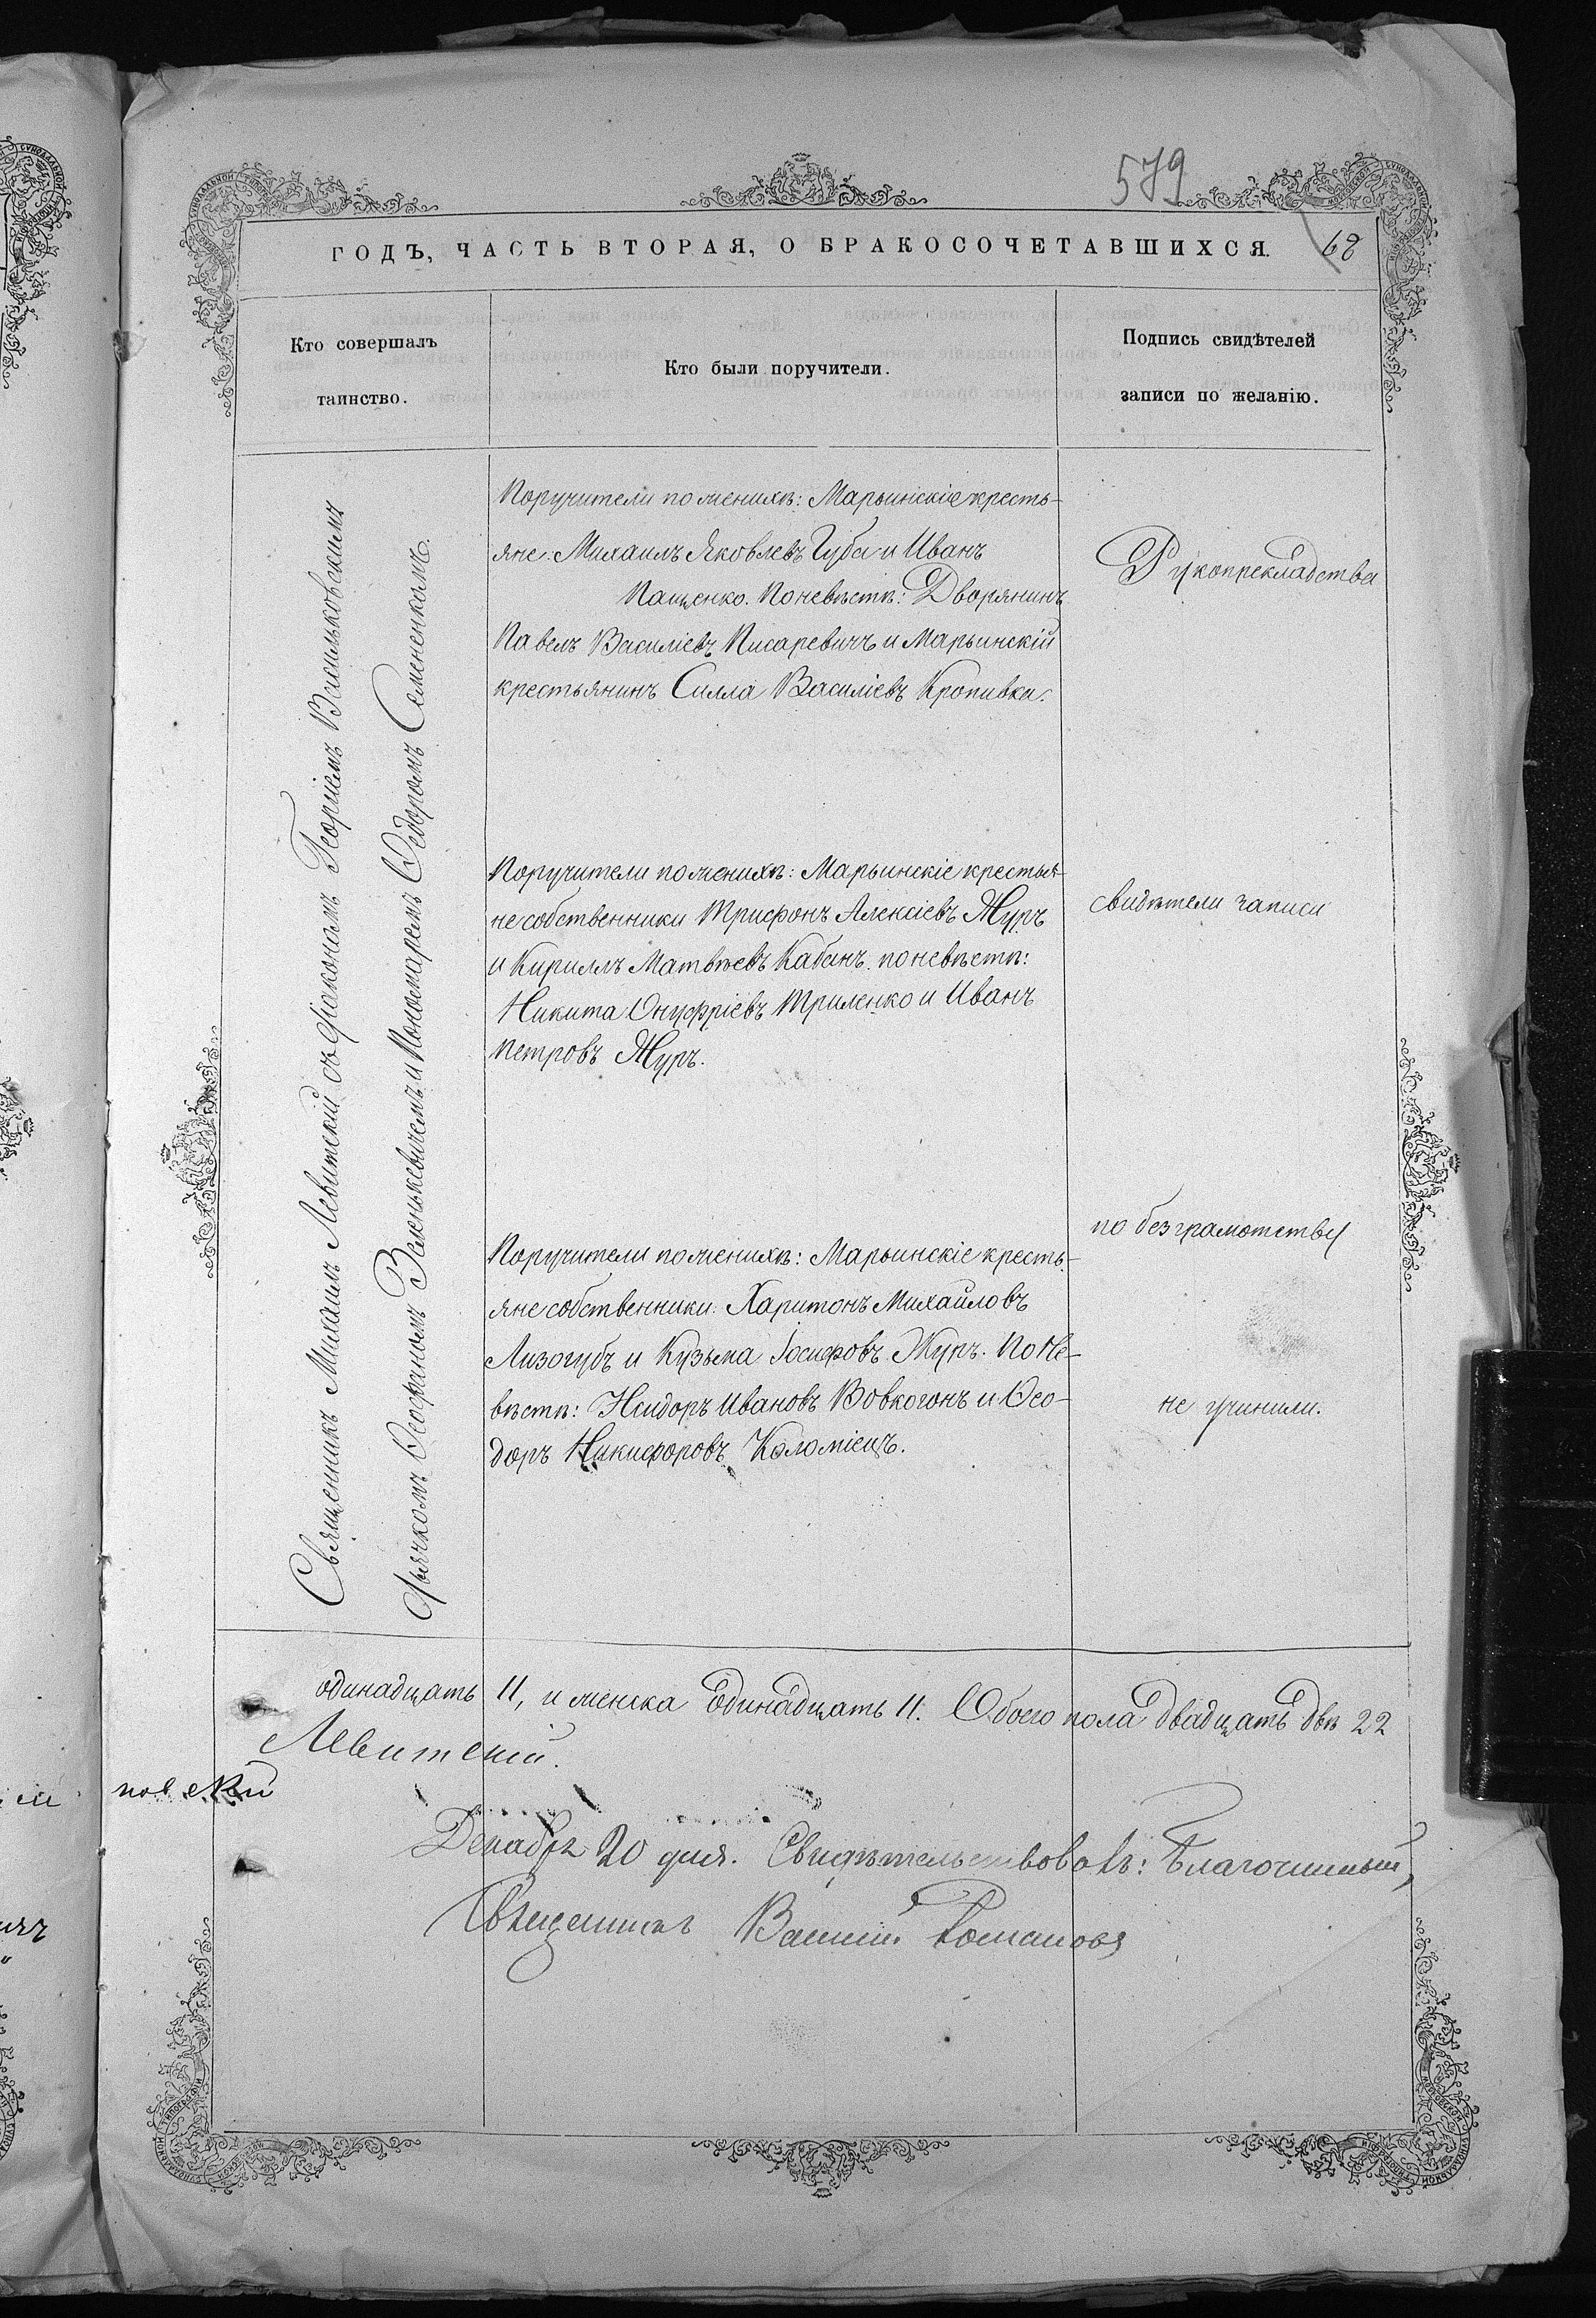 579
ГОДЪ, ЧАСТЬ ВТОРАЯ, О БРАКОСОЧЕТАВШИХСЯ.
68
Кто совершалъ
таинство.
Кто были поручители.
Подпись свидѣтелей
записи по желанію.
Священникъ Михаилъ Левитскій съ Діакономъ Георгіемъ Васильковскимъ
Дьячкомъ Ѳеофаномъ Зеленькевичемъ и Пономаремъ Ѳедоромъ Семененкомъ.
Поручители по женихѣ: Марьинскіе кресть-
яне: Михаилъ Яковлевъ Губа и Иванъ
Пащенко. По невѣстѣ: Дворянинъ
Павелъ Василіевъ Писаревичъ и Марьинскій
крестьянинъ Силла Василіевъ Кропивка.
Поручители по женихѣ: Марьинскіе крестья-
не собственники Трифонъ Алексіевъ Журъ
и Кириллъ Матвѣевъ Кабанъ. по невѣстѣ:
Никита Онуфріевъ Триленко и Иванъ
Петровъ Журъ.
Поручители по женихѣ: Марьинскіе кресть-
яне собственники: Харитонъ Михайловъ
Лизогубъ и Кузьма Іосифовъ Журъ. По Не-
вѣстѣ: Исидоръ Ивановъ Вовкогонъ и Ѳео-
доръ Никифоровъ Коломіецъ.
Рукоприкладства
свидѣтели записи
по безграмотству
не учинили.
одинадцать 11, и женска одинадцать 11. Обоего пола двадцать двѣ 22
Левитскій.
Декабря 20 дня. Свидѣтельствовалъ: Благочинный,
Священникъ Василій Романовъ